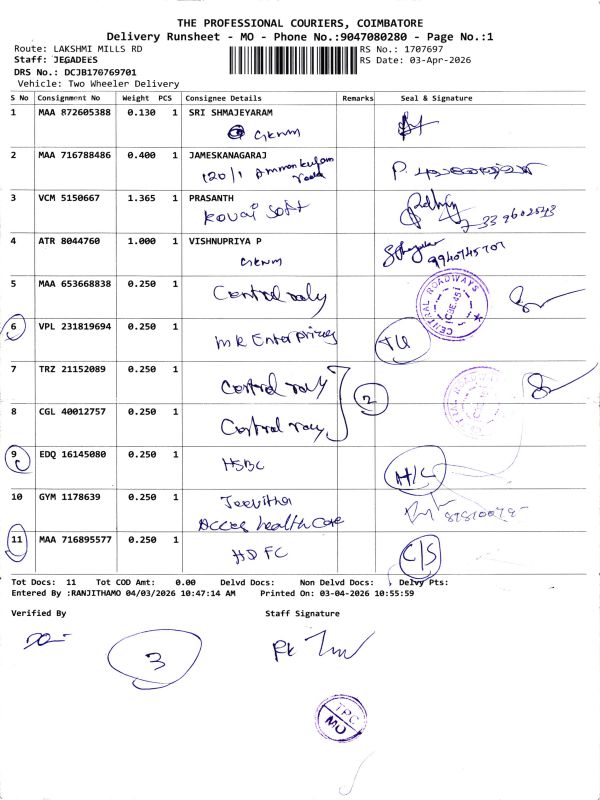 THE PROFESSIONAL COURIERS, COIMBATORE
Delivery Runsheet - MO - Phone No.:9047080280 - Page No.:1
Route: LAKSHMI MILLS RD RS No.: 1707697
Staff: JEGADEES RS Date: 03-Apr-2026
DRS No.: DCJB170769701
Vehicle: Two Wheeler Delivery
S No Consignment No Weight PCS Consignee Details Remarks Seal & Signature
1 MAA 872605388 0.130 1 SRI SHMAJEYARAM
GKNM
2 MAA 716788486 0.400 1 JAMESKANAGARAJ
120/1 Ammankulam
Road
3 VCM 5150667 1.365 1 PRASANTH
Kovai Soft
4 ATR 8044760 1.000 1 VISHNUPRIYA P
GKNM 9940745707
5 MAA 653668838 0.250 1
Central CENTRAL ROADWAYS CBE.45
6 VPL 231819694 0.250 1
MR Enterprises
7 TRZ 21152089 0.250 1
Central 2
8 CGL 40012757 0.250 1
Central
9 EDQ 16145080 0.250 1
HSBC H/C
10 GYM 1178639 0.250 1 Jeevitha
Acces health care
11 MAA 716895577 0.250 1
HDFC C/S
Tot Docs: 11 Tot COD Amt: 0.00 Delvd Docs: Non Delvd Docs: Delvy Pts:
Entered By :RANJITHAMO 04/03/2026 10:47:14 AM Printed On: 03-04-2026 10:55:59
Verified By Staff Signature
3
TPC
MO